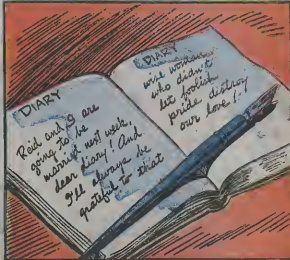 DIARY
Reid and I are
going to be
married next week,
dear diary! And
I'll always be
grateful to that
DIARY
wise woman
who didn't
let foolish
pride distroy
our love!